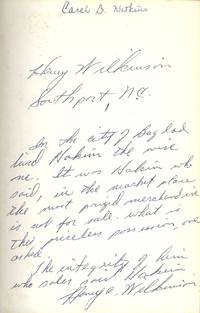 Carol B. Watkins
Henry Wilkinson
Southport, N.C.
In the city of Bagdad
lived Hakim the wise
one. It was Hakim who
said, in the market place
the most prized merchandise
is not for sale. what is
this priceless possession, one
asked
The integrity of him
who sales said Hakim.
Henry A. Wilkinson